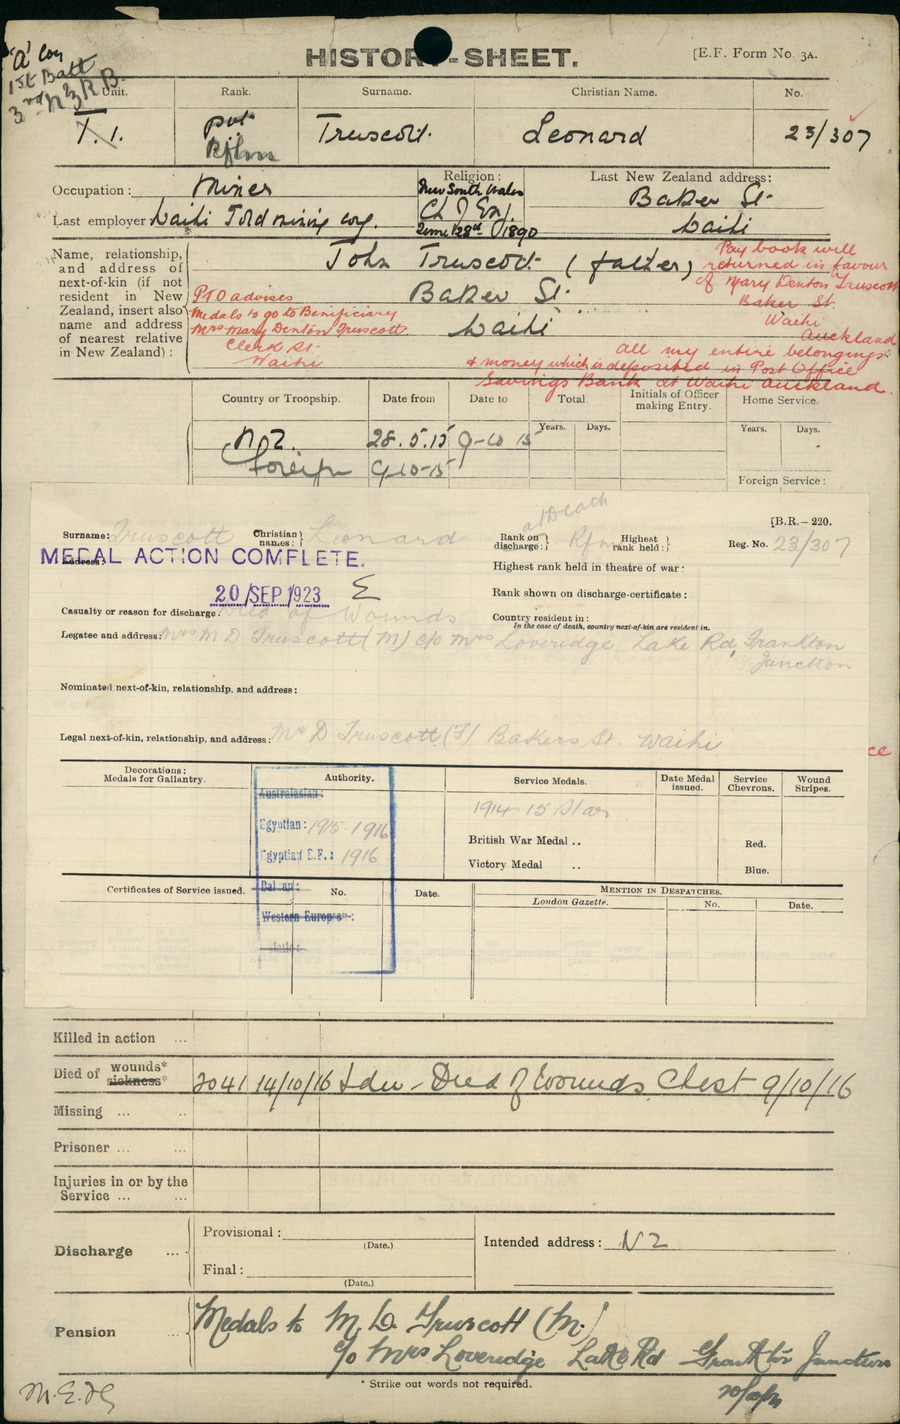 HISTORY-SHEET.
[E.F. Form No. 3A.
'A' Coy
1st Batt
3rd N Z R B.
Unit. Rank. Surname. Christian Name. No.
T. 1. pvt Truscott. Leonard 23/307
Rflmn
Occupation: Miner
Last employer Waihi Gold mining coy.
Religion:
New South Wales
Ch of En.
June 28th 1890
Last New Zealand address:
Baker St.
Waihi
Name, relationship, and address of next-of-kin (if not resident in New Zealand, insert also name and address of nearest relative in New Zealand):
John Truscott (father)
Baker St.
Waihi
PTO advises
Medals to go to Beneficiary
Mrs Mary Denton Truscott
Clerk St.
Waihi
Pay book will
returned in favour
of Mary Denton Truscott
Baker St.
Waihi
Auckland
all my entire belongings
& money which is deposited in Post Office
Savings Bank at Waihi Auckland.
Country or Troopship. Date from Date to Total. Initials of Officer making Entry. Home Service.
Years. Days. Years. Days.
N Z. 28.5.15 9-10 15
Foreign 9-10-15
Foreign Service:
[B.R.—220.
Surname: Truscott Christian names: Leonard Rank on discharge: at Death Rfmn Highest rank held: Reg. No. 23/307
Address:
MEDAL ACTION COMPLETE.
20 SEP 1923
Highest rank held in theatre of war:
Rank shown on discharge-certificate:
Casualty or reason for discharge: Died of Wounds
Country resident in:
In the case of death, country next-of-kin are resident in.
Legatee and address: Mrs M D Truscott (M) c/o Mrs Loveridge Lake Rd, Frankton
Junction
Nominated next-of-kin, relationship, and address:
Legal next-of-kin, relationship, and address: Mr D Truscott (F) Bakers St. Waihi
Decorations: Medals for Gallantry. Authority. Service Medals. Date Medal issued. Service Chevrons. Wound Stripes.
Australasian:
Egyptian: 1915-1916
Egyptian E.F.: 1916
Balkan:
Western European:
1914-15 Star
British War Medal ..
Victory Medal ..
Red.
Blue.
Certificates of Service issued. No. Date.
MENTION IN DESPATCHES.
London Gazette. No. Date.
Killed in action ...
Died of wounds* sickness* 2041 14/10/16 Died of Wounds Chest 9/10/16
Missing ... ...
Prisoner ... ...
Injuries in or by the Service ... ...
Discharge ...
Provisional:
(Date.)
Final:
(Date.)
Intended address: N Z
Pension ...
Medals to M. D. Truscott (M.)
c/o Mrs Loveridge Lake Rd Frankton Junction
* Strike out words not required.